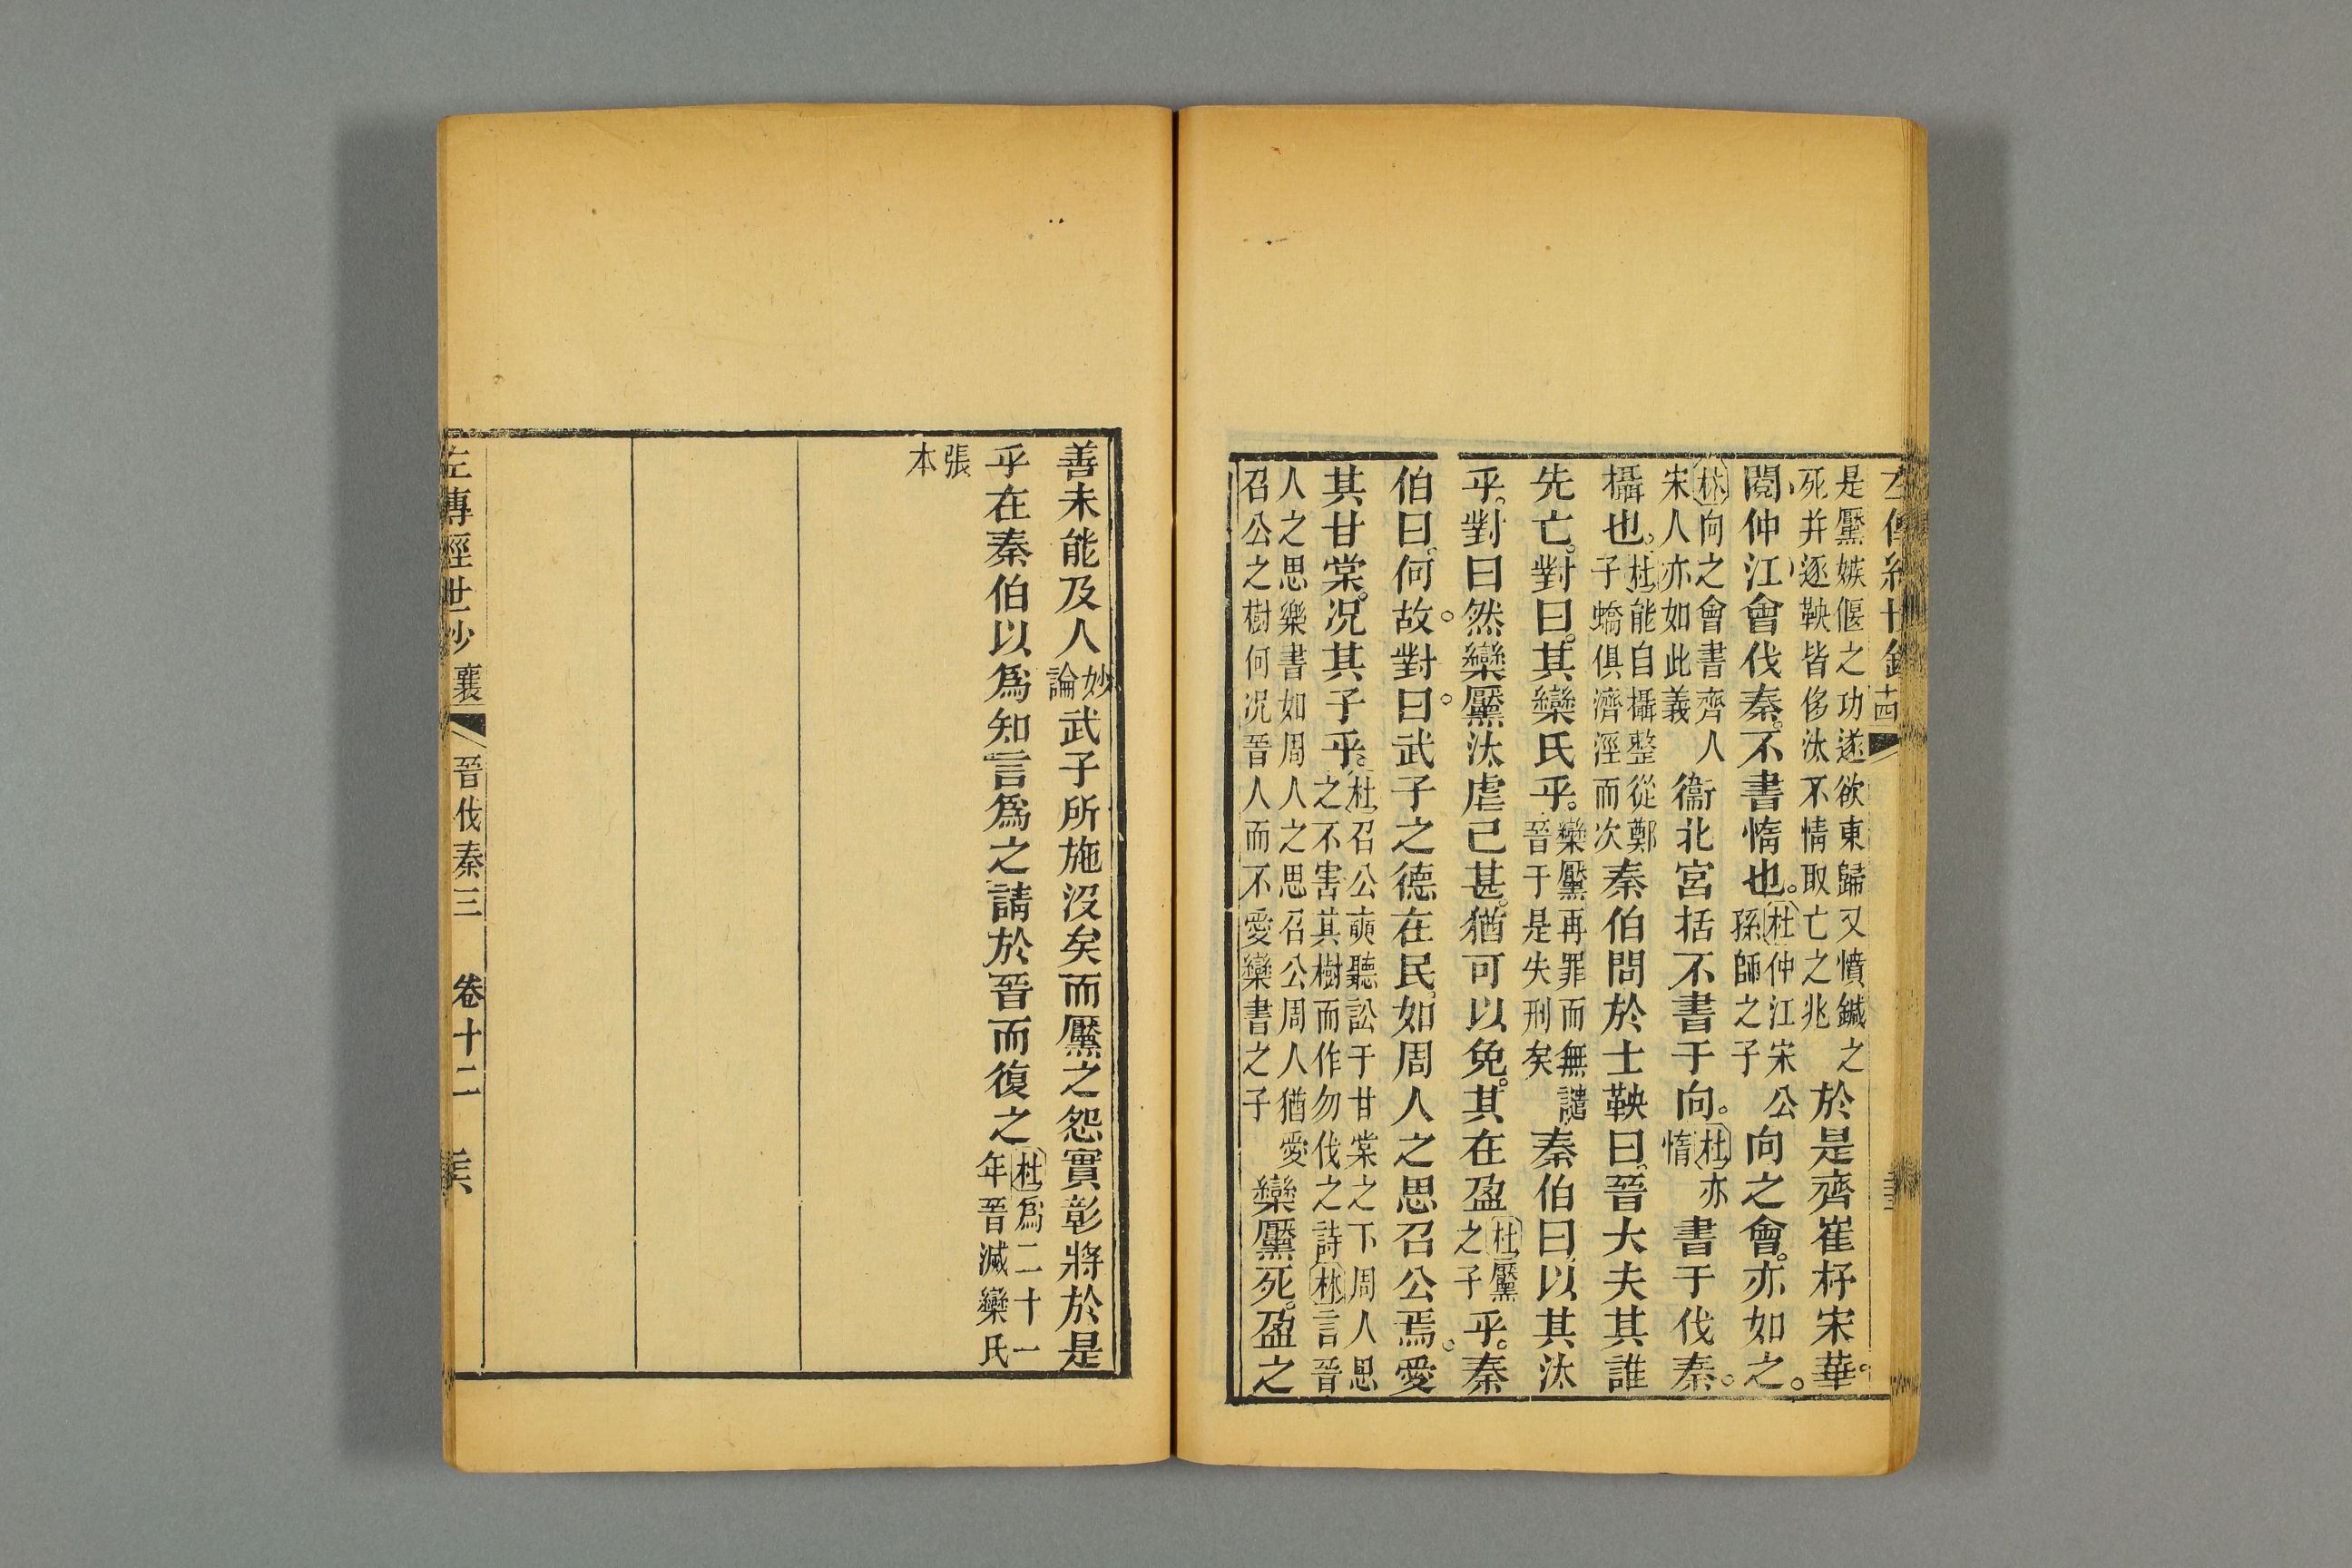 是黶嫉偃之功遂欲東歸又憤鍼之
死并逐鞅皆侈汰不情取亡之兆
於是齊崔杼宋華
閱仲江會伐秦。不書惰也。
杜仲江宋公
孫師之子
向之會。亦如之。
林向之會書齊人
宋人亦如此義
衞北宮括不書于向。
杜亦
惰
書于伐秦。
攝也。
杜能自攝整從鄭
子蟜俱濟涇而次
秦伯問於士鞅曰。晉大夫其誰
先亡。對曰。其欒氏乎。
欒黶再罪而無譴
晉于是失刑矣
秦伯曰。以其汰
乎。對曰然欒黶汰虐已甚。猶可以免。其在盈
杜黶
之子
乎。秦
伯曰。何故。對曰。武子之德在民。如周人之思召公焉。愛
其甘棠。况其子乎。
杜召公奭聽訟于甘棠之下周人思
之不害其樹而作勿伐之詩林言晉
人之思欒書如周人之思召公周人猶愛
召公之樹何况晉人而不愛欒書之子
欒黶死。盈之
左傳經世鈔 十四
善未能及人
妙
論
武子所施沒矣而黶之怨實彰將於是
乎在秦伯以爲知言爲之請於晉而復之
杜爲二十一
年晉滅欒氏
張
本
左傳經世鈔 襄 晉伐秦三 卷十二